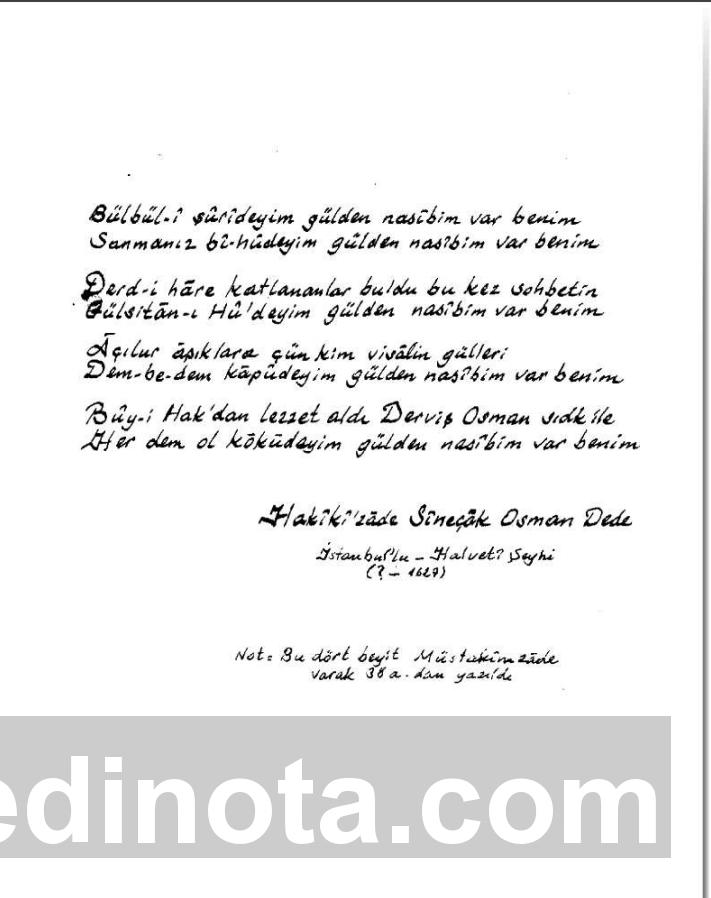 Bülbül-î şûrîdeyim gülden nasîbim var benim
Sanmanız bî-hûdeyim gülden nasîbim var benim
Derd-i hāre katlananlar buldu bu kez sohbetin
Gülsitān-ı Hû'deyim gülden nasîbim var benim
Āçılur āşıklara çün kim visālin gülleri
Dem-be-dem kāpûdeyim gülden nasîbim var benim
Bûy-i Hak'dan lezzet aldı Derviş Osman sıdk ile
Her dem ol kōkûdayim gülden nasîbim var benim
Hakîkî'zāde Sîneçāk Osman Dede
İstanbul'lu - Halvetî Şeyhi
(? - 1627)
Not: Bu dört beyit Müstakîmzāde
varak 38 a. dan yazıldı
edinota.com